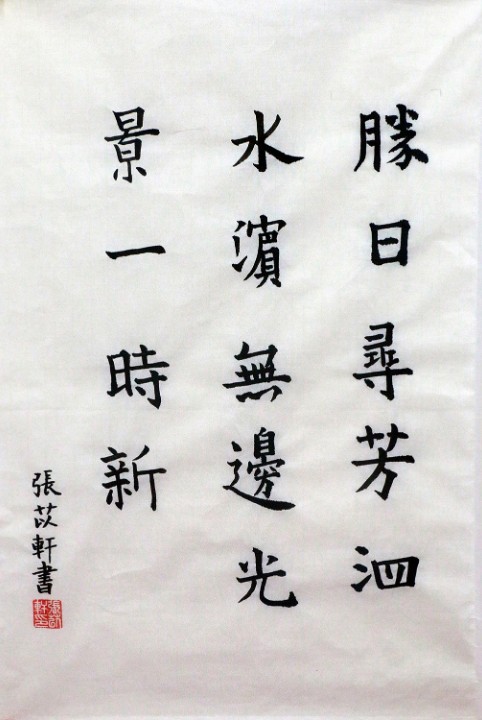 勝日尋芳泗
水濵無邊光
景一時新
張苡軒書